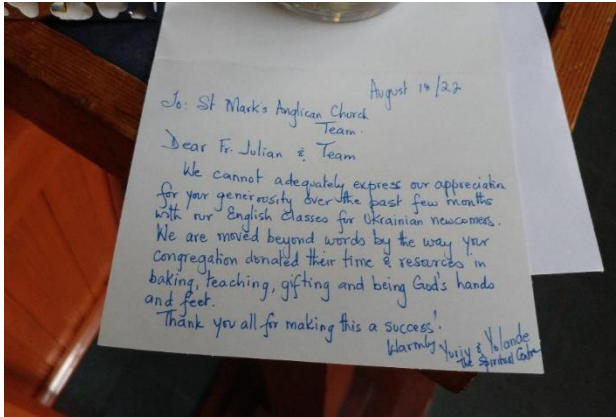 August 18/22
To: St Mark's Anglican Church
Team.
Dear Fr. Julian & Team
We cannot adequately express our appreciation
for your generiousity over the past few months
with our English classes for Ukrainian newcomers.
We are moved beyond words by the way your
congregation donated their time & resources in
baking, teaching, gifting and being God's hands
and feet.
Thank you all for making this a success!
Warmly Yuriy & Yolande
The Spiritual Centre